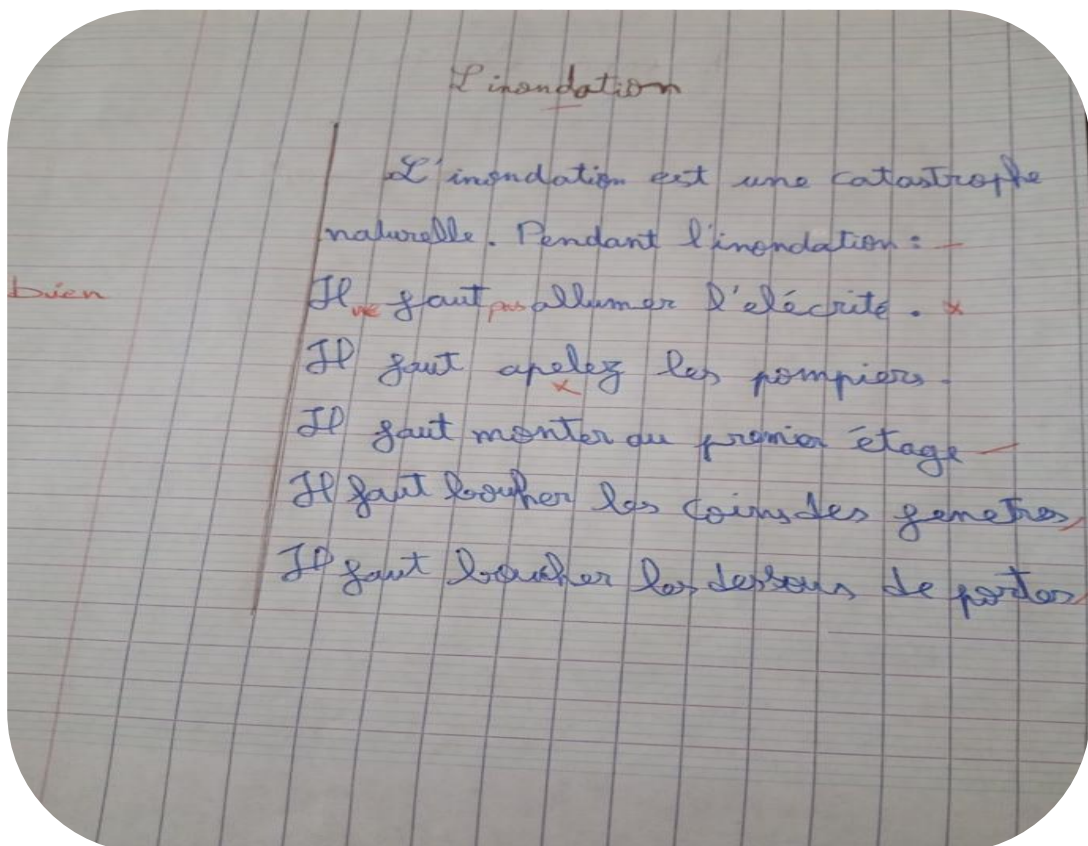 L'inondation
L'inondation est une catastrophe
naturelle. Pendant l'inondation :
bien
Il ne faut pas allumer l'elécrité.
Il faut apelez les pompiers.
Il faut monter au premier étage
Il faut boucher les coins des fenetres
Il faut boucher les dessous de portes